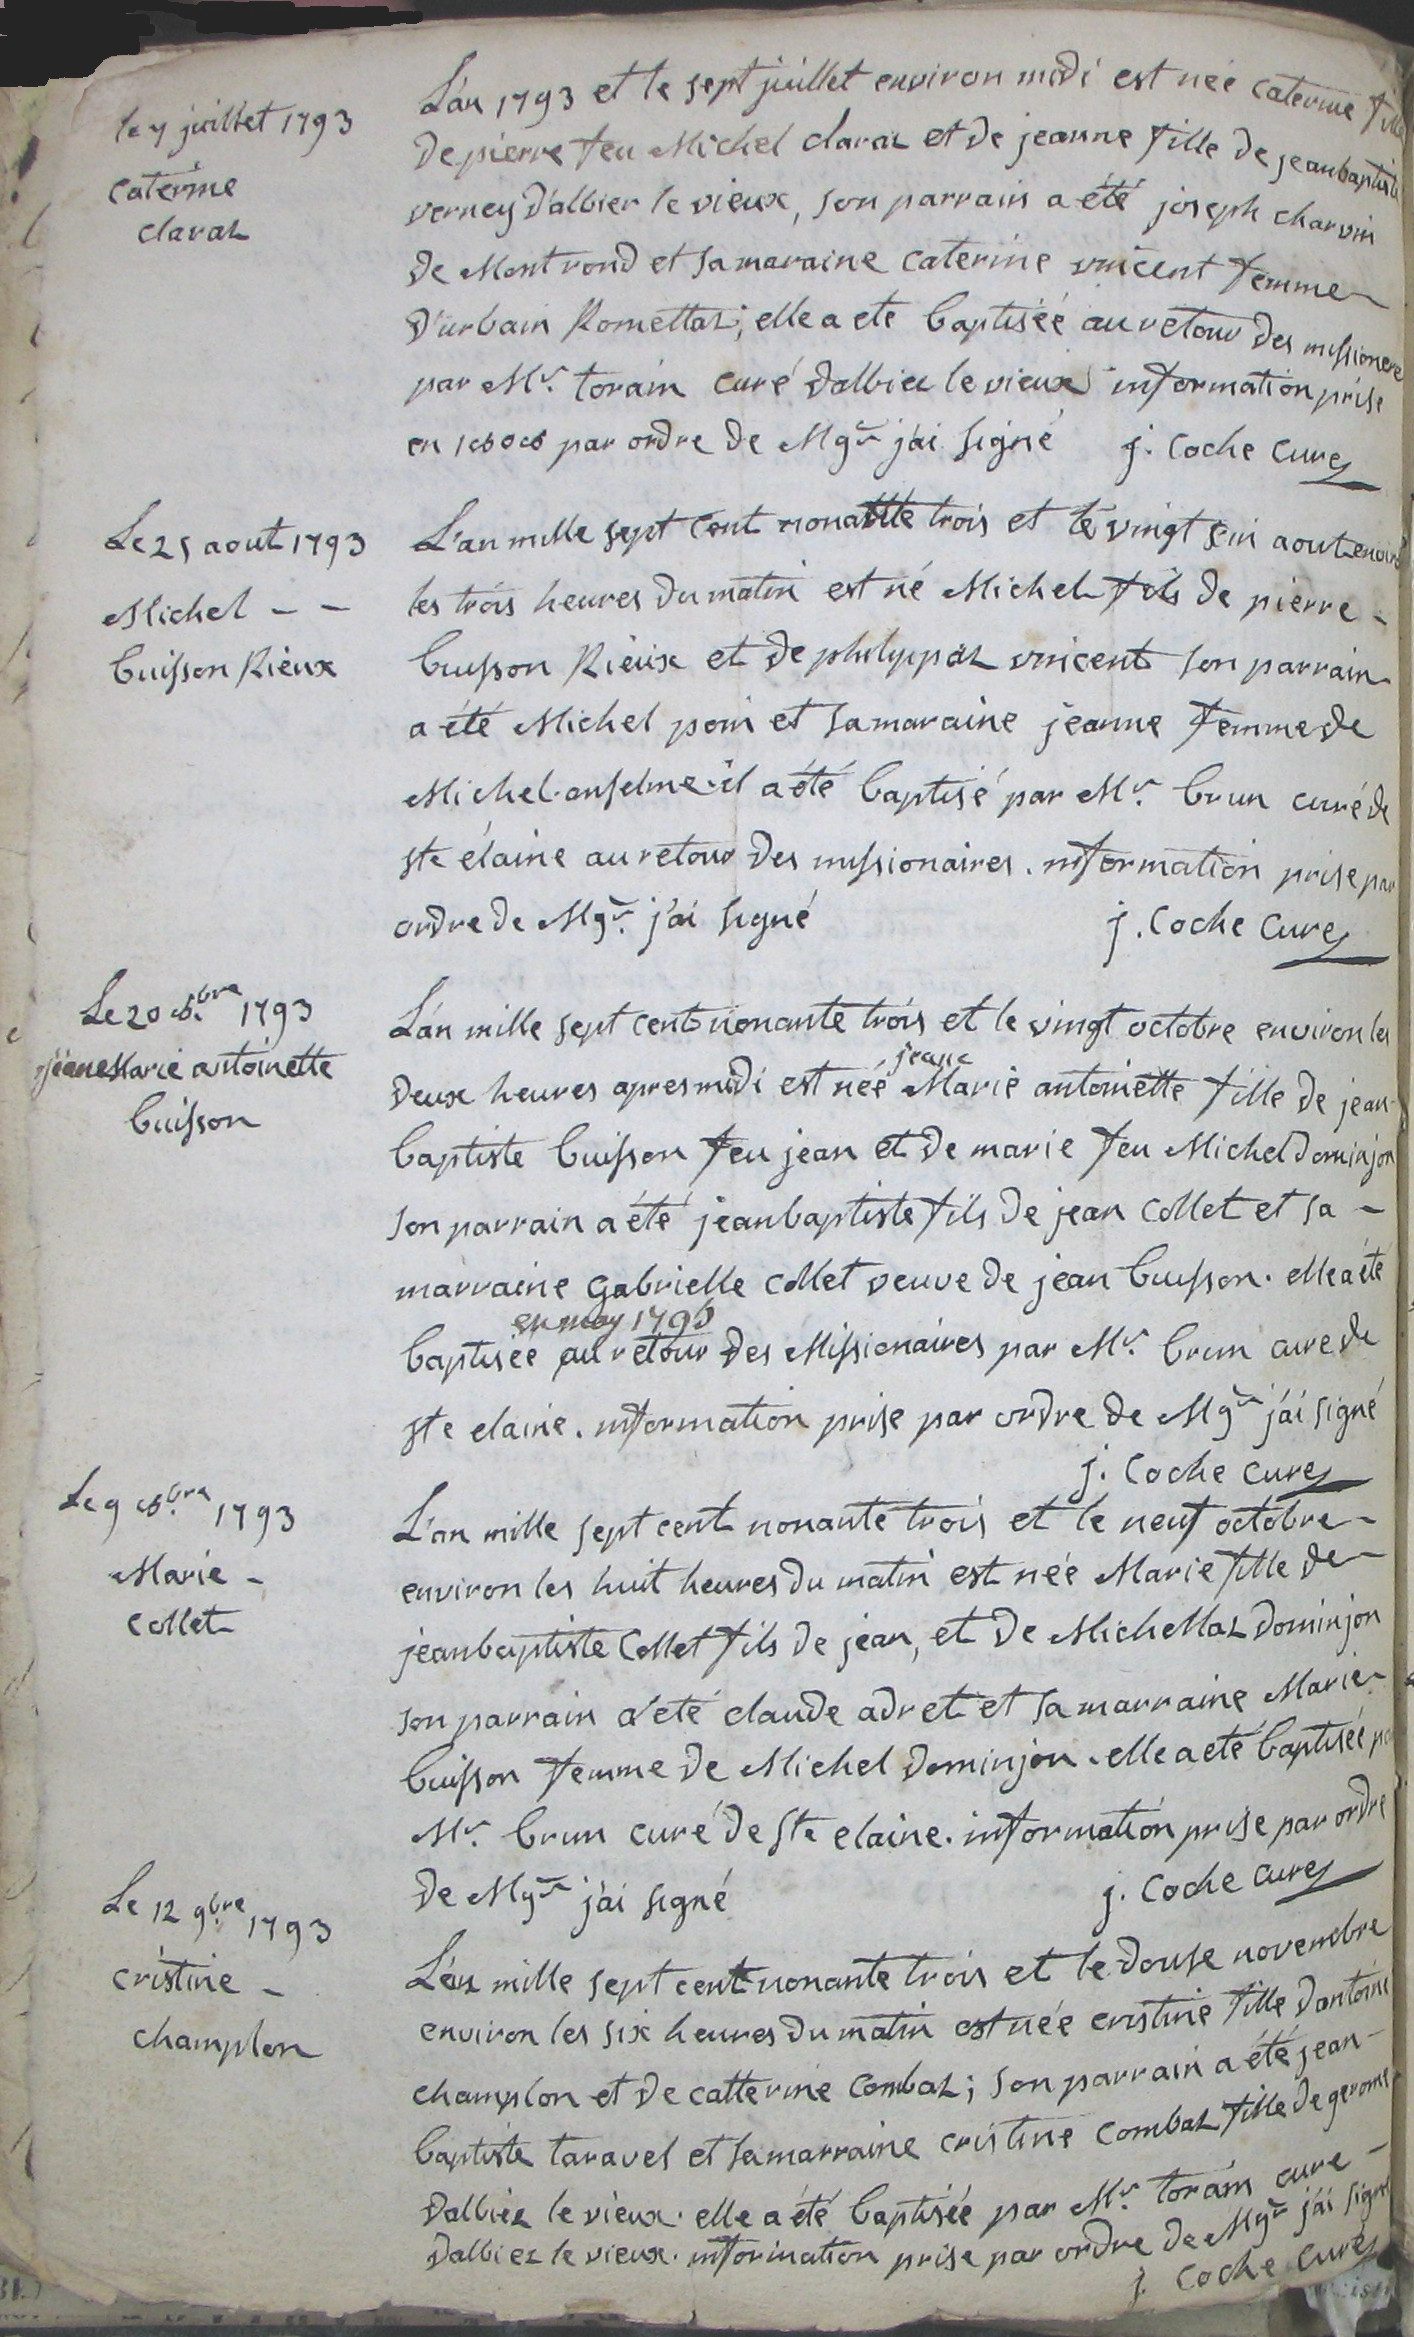 le 7 juillet 1793
caterine
claraz
L'an 1793 et le sept juillet environ midi est née caterine fille
de pierre feu Michel claraz et de jeanne fille de jeanbaptiste
verney d'albier le vieux, son parrain a été joseph charvin
de Montrond et sa maraine caterine vincent femme
d'urbain Romettaz; elle a ete baptisée au retour des missionere
par Mr. torain curé dalbiez le vieux information prise
en 1808 par ordre de Mgr j'ai signé j. Coche Curé
Le 25 aout 1793
Michel - -
buisson Rieux
L'an mille sept cent nonante trois et le vingt cin aout environ
les trois heures du matin est né Michel fils de pierre -
buisson Rieux et de philippaz vincent son parrain
a été Michel poin et sa maraine jeanne femme de
Michel anselme. il a été baptisé par Mr. brun curé de
ste élaine au retour des missionaires. information prise par
ordre de Mgr. j'ai signé j. Coche Curé
Le 20 8.bre 1793
jeane Marie antoinette
buisson
L'an mille sept cent nonante trois et le vingt octobre environ les
jeane
deux heures apres midi est née Marie antoinette fille de jean-
baptiste buisson feu jean et de marie feu Michel dominjon
son parrain a été jeanbaptiste fils de jean Collet et sa -
marraine gabrielle Collet veuve de jean buisson. elle a été
en may 1796
baptisée au retour des Missionaires par Mr. brun cure de
ste elaine. information prise par ordre de Mgr j'ai signé
j. Coche curé
Le 9 8.bre 1793
Marie -
Collet
L'an mille sept cent nonante trois et le neuf octobre -
environ les huit heures du matin est née Marie fille de -
jeanbaptiste Collet fils de jean, et de Michellaz Dominjon
son parrain a été claude adret et sa marraine Marie -
buisson femme de Michel Dominjon. elle a eté baptisée par
Mr. brun curé de Ste elaine. information prise par ordre
de Mgr j'ai signé j. Coche Curé
Le 12 9bre 1793
cristine -
champlon
L'an mille sept cent nonante trois et le douse novembre
environ les six heures du matin est née cristine fille d'antoine
champlon et de catterine Combaz; son parrain a été jean -
baptiste taravel et sa marraine cristine Combaz fille de gerome
dalbiez le vieux. elle a été baptisée par Mr. torain cure -
dalbiez le vieux. information prise par ordre de Mgr j'ai signé
j. Coche Curé